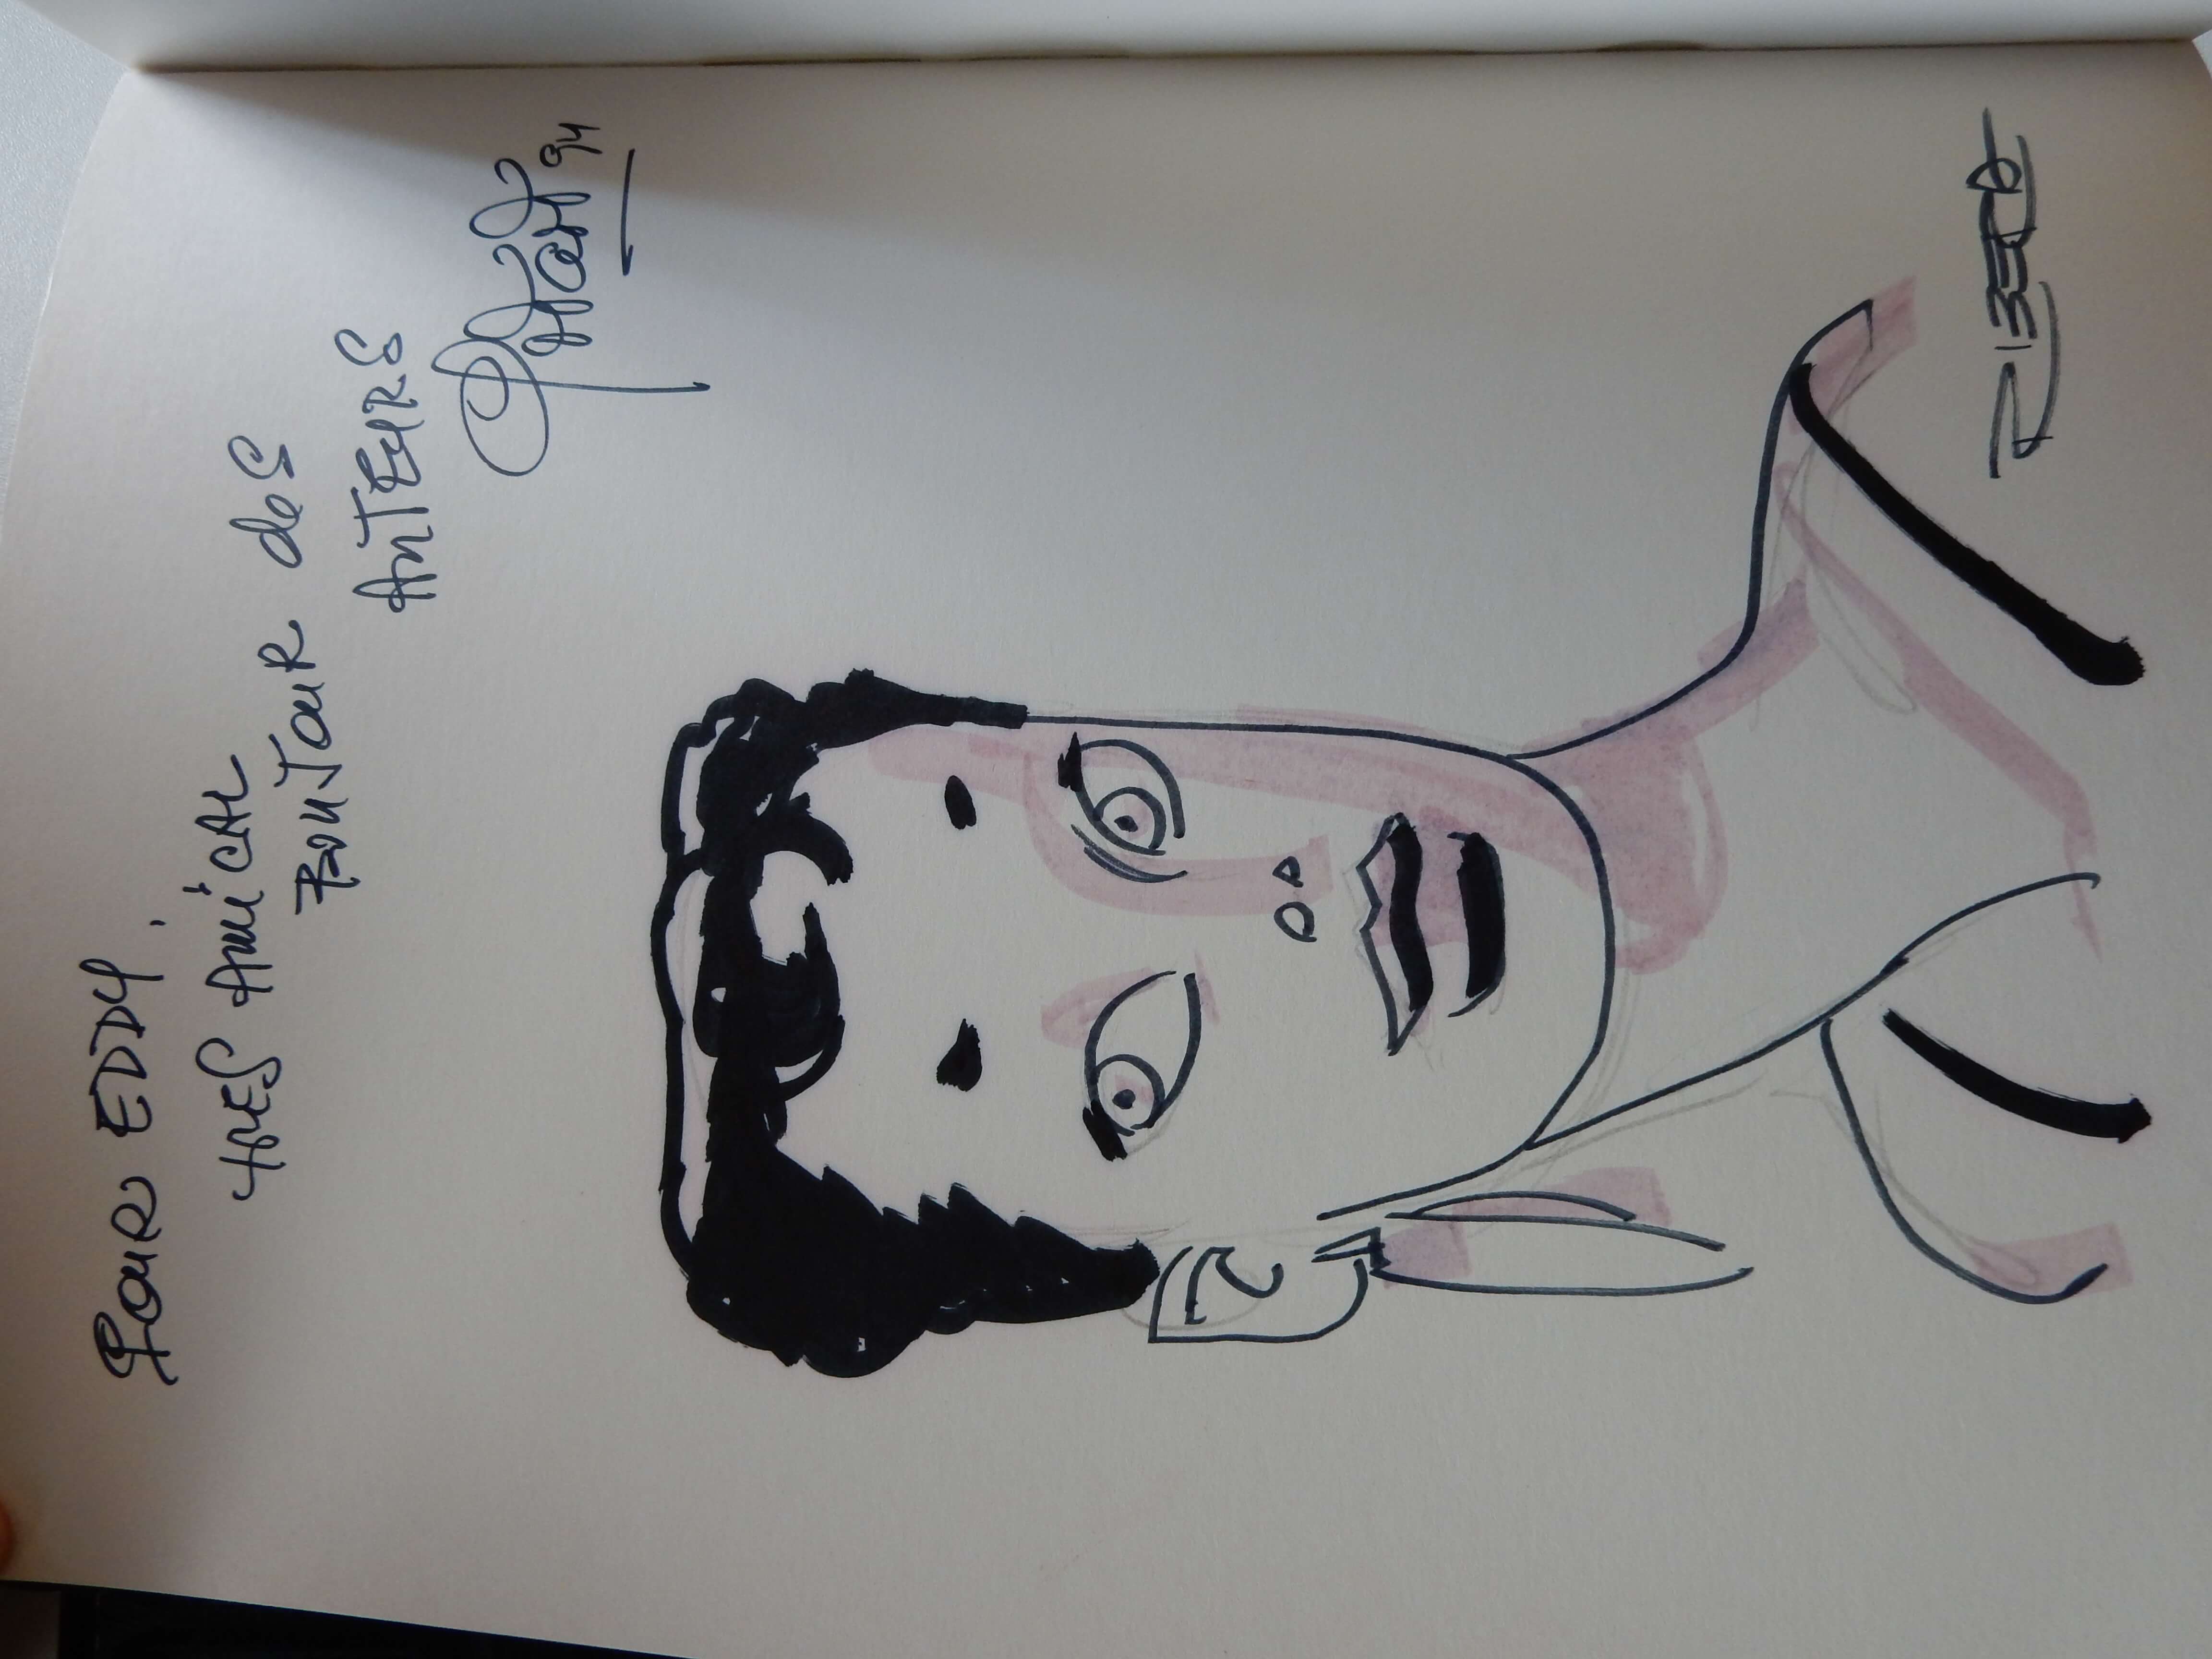 POUR EDDY,
TRES AMICAL
BONJOUR des
AUTEURS
94
RIBERA